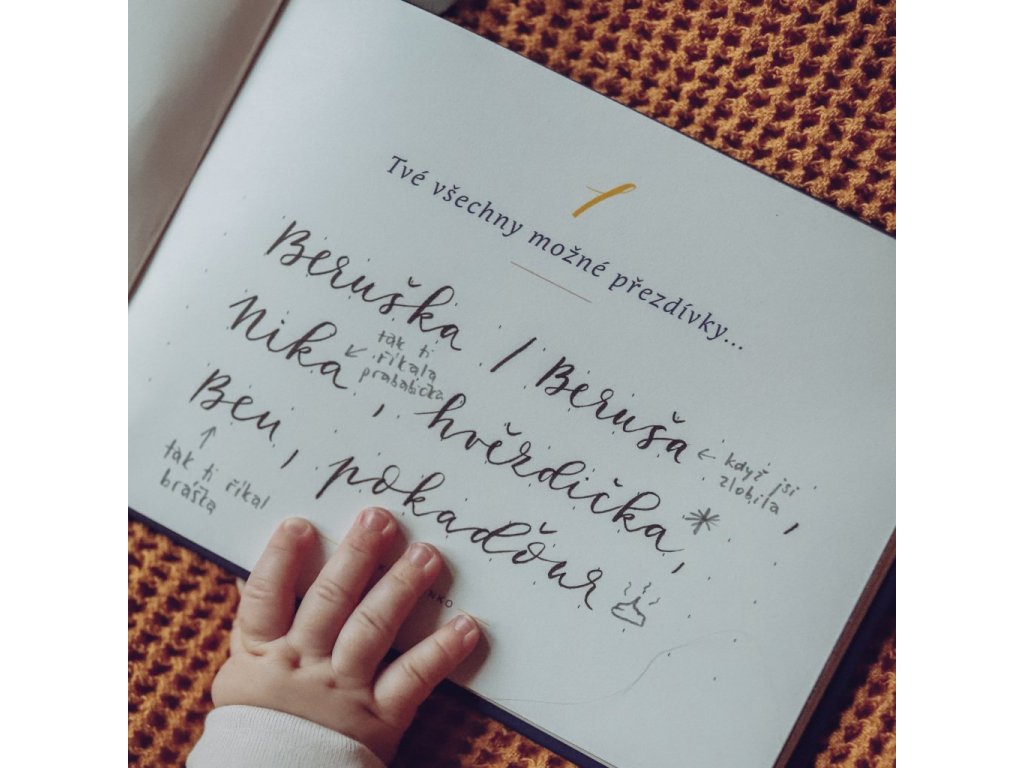 Tvé všechny možné přezdívky...
Beruška / Beruša ← když jsi zlobila,
Nika ← tak ti říkala prababička, hvězdička,
Ben, pokadŏur
↑ tak ti říkal
braška
NKO